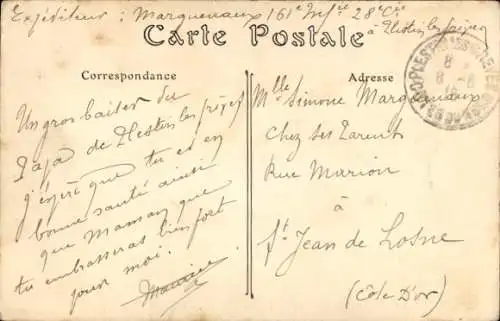 Expéditeur : Marquevaux 161e Infie 28e Cie
à Plestin les Grèves
Carte Postale
Correspondance
Adresse
Un gros baiser du
Papa de Plestin les grèves
j'espère que tu es en
bonne santé ainsi
que Maman que
tu embrasseras bien fort
pour moi.
Maurice
Mlle Simone Marquevaux
Chez ses Parents
Rue Marion
à
St Jean de Losne
(Côte D'or)